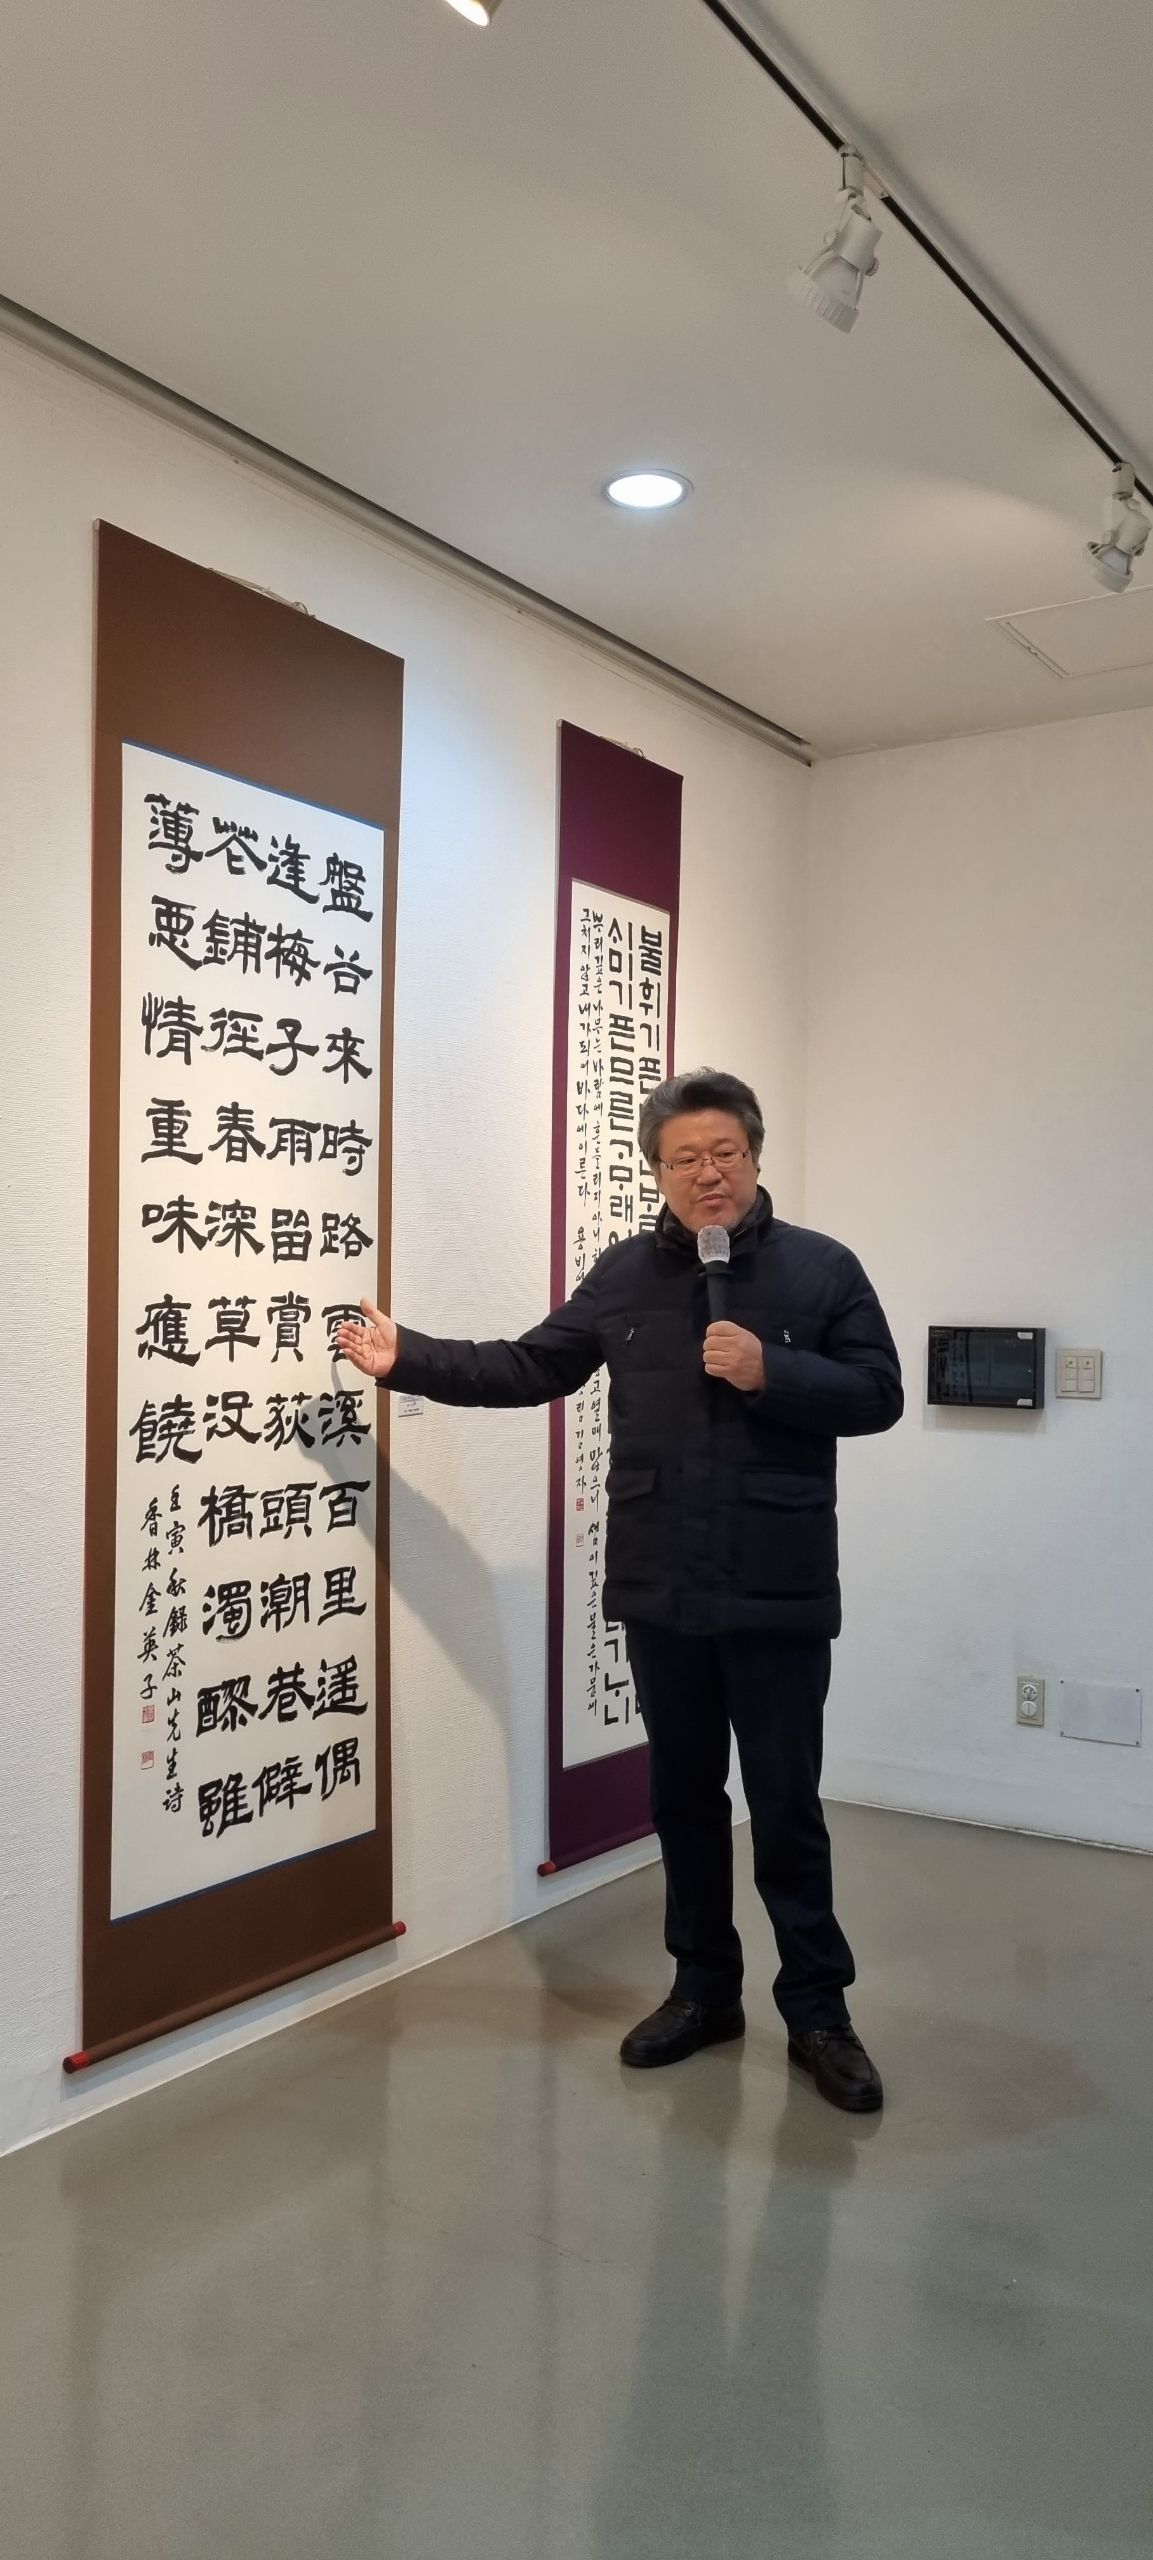 盤谷來時路雲溪百里遥偶
逢梅子雨畱賞荻頭潮巷僻
花鋪徑春深草没橋濁醪雖
薄悪情重味應饒
壬寅秋録茶山先生詩
香林金英子
불휘기픈
ᄉᆡ미기픈므른ᄀᆞᄆᆞ래
뿌리깊은나무는바람에흔들리지아니하 고열매맑으니샘이깊은물은가뭄에
그치지않고내가되어바다에이른다 용비 김영자